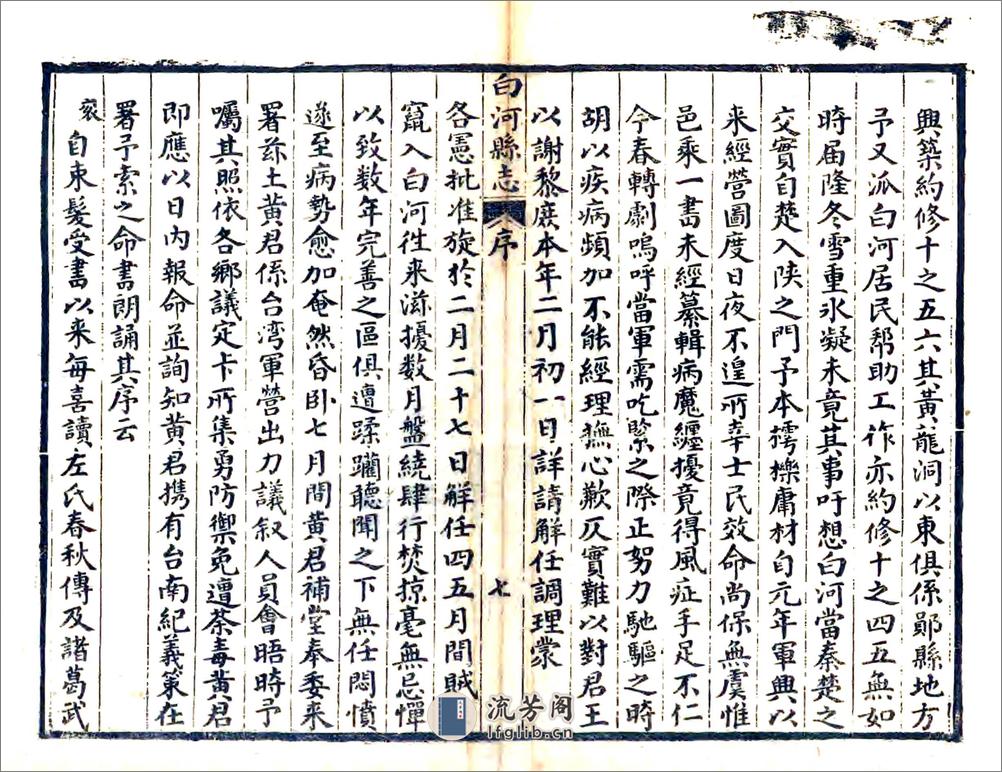 興築約修十之五六其黃龍洞以東俱係鄖縣地方
予又派白河居民幫助工作亦約修十之四五無如
時届隆冬雪重氷凝未竟其事吁想白河當秦楚之
交實自楚入陕之門予本樗櫟庸材自元年軍興以
来經營圖度日夜不遑所幸士民效命尚保無虞惟
邑乘一書未經纂輯病魔纏擾竟得風症手足不仁
今春轉劇嗚呼當軍需吃緊之際正努力馳驅之時
胡以疾病頻加不能經理撫心歉仄實難以對君王
以謝黎庶本年二月初一日詳請解任調理蒙
白河縣志
序
七
各憲批准旋於二月二十七日解任四五月間賊
竄入白河徃来滋擾数月盤繞肆行焚掠毫無忌憚
以致数年完善之區俱遭蹂躪聽聞之下無任悶憤
遂至病勢愈加奄然昏卧七月間黃君補堂奉委来
署茲土黃君係台湾軍營出力議叙人員會晤時予
囑其照依各鄉議定卡所集勇防禦免遭荼毒黃君
即應以日內報命並詢知黃君携有台南紀義策在
署予索之命書朗誦其序云
衮自束髮受書以来每喜讀左氏春秋傳及諸葛武
流芳阁
lfglib.cn